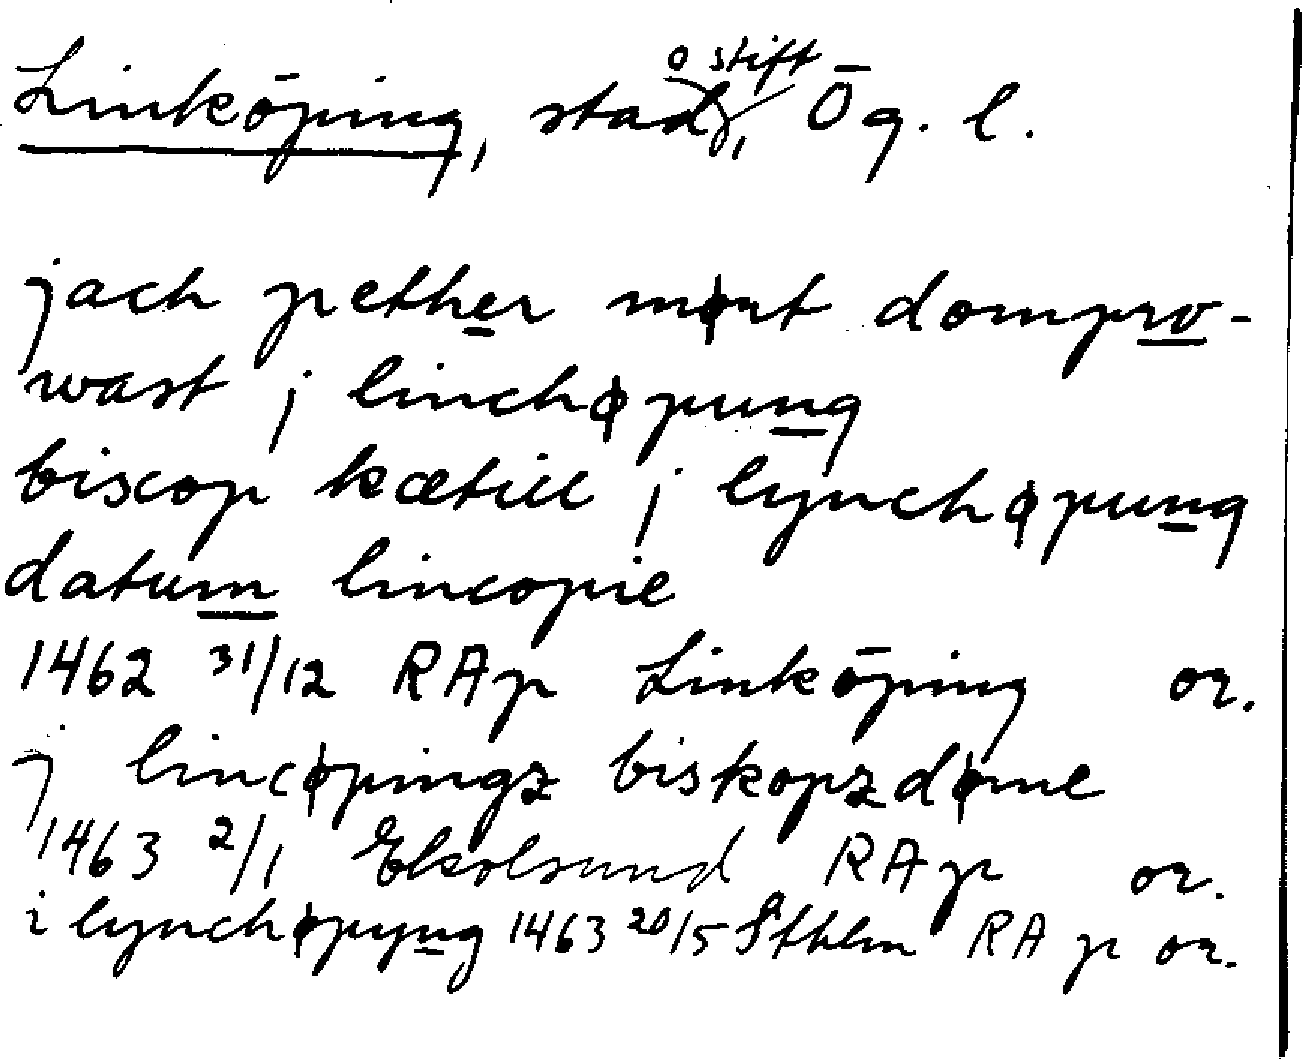 Linköping, stad o stift, Ög. l.
jach pether mørt dompro-
wast j linchøpung
biscop kætill j lynchøpung
datum lincopie
1462 31/12 RAp Linköping or.
j lincøpingz biskopzdøme
1463 2/1 Ekolsund RAp or.
i lynchøpyng 1463 20/5 Sthlm RAp or.